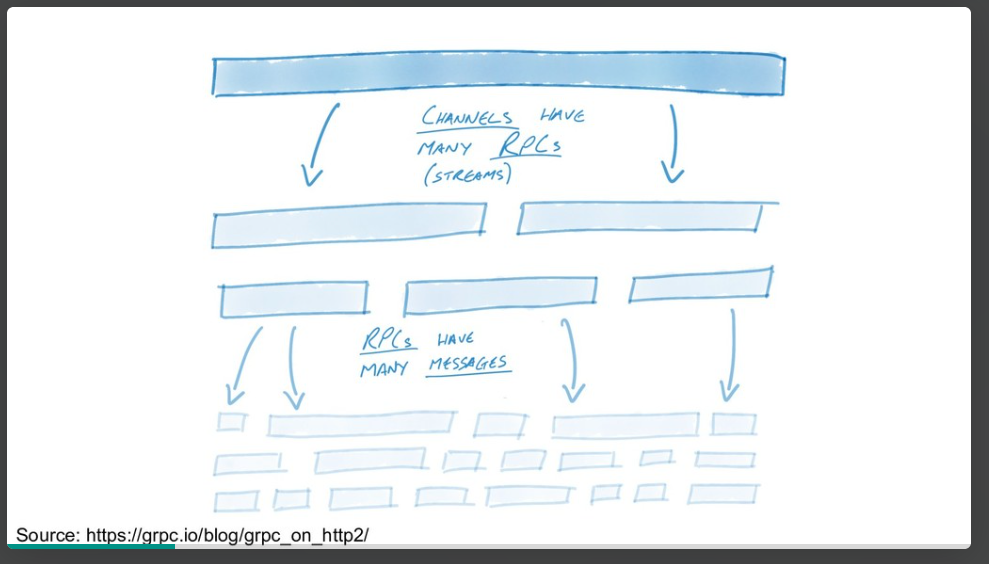 CHANNELS HAVE
MANY RPCs
(STREAMS)
RPCs HAVE
MANY MESSAGES
Source: https://grpc.io/blog/grpc_on_http2/